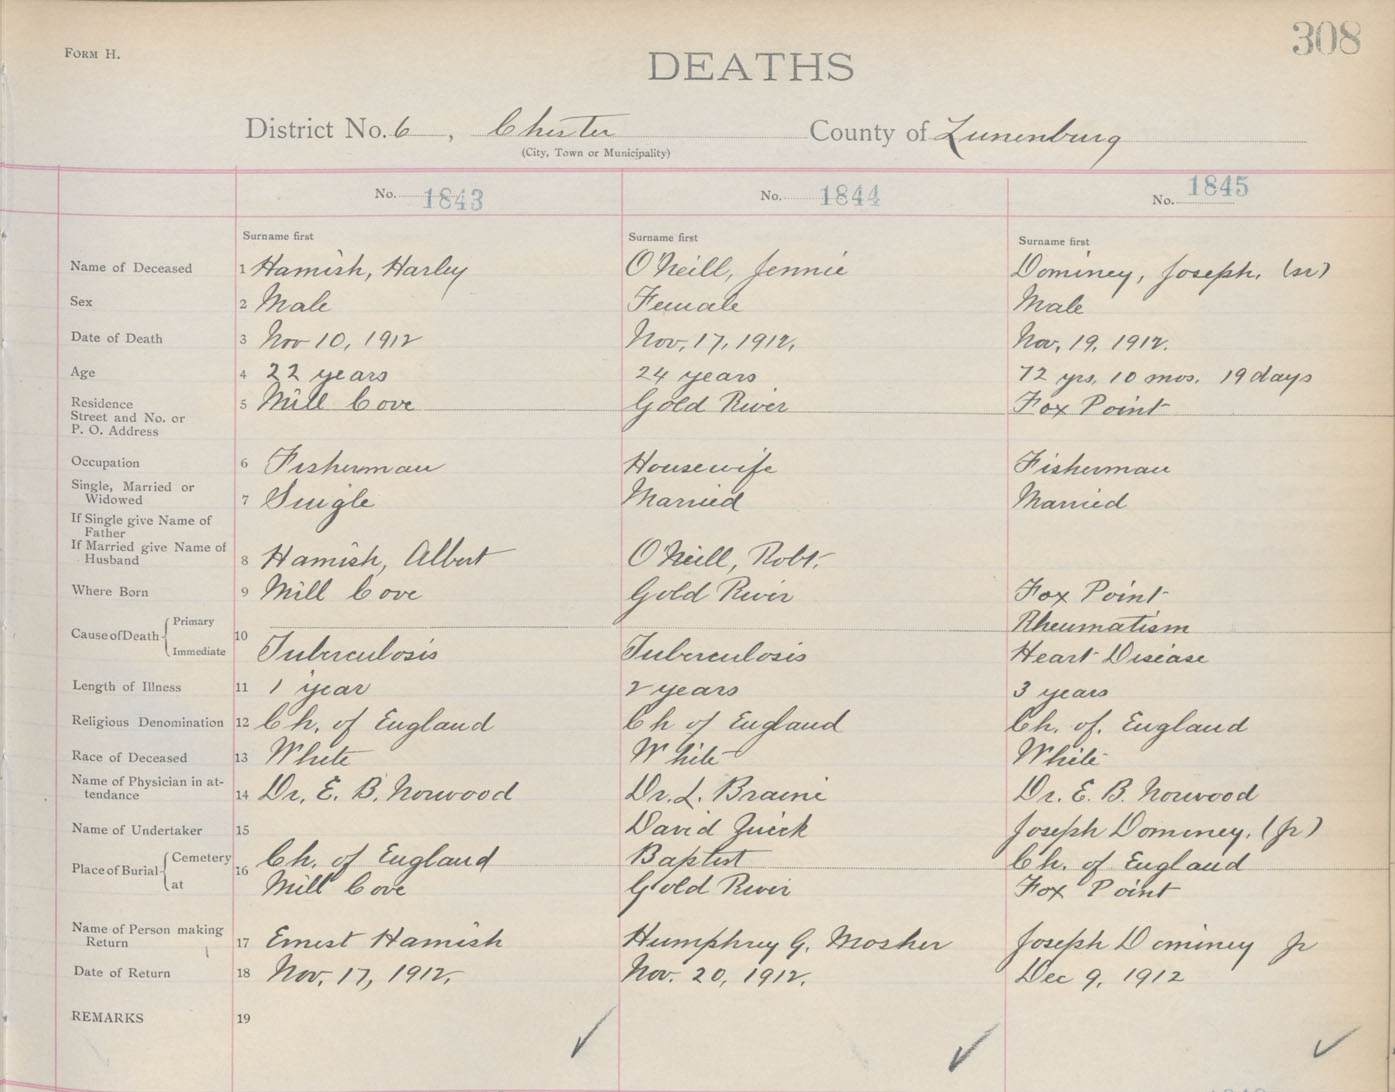 308
FORM H.
DEATHS
District No. 6, Chester County of Lunenburg
(City, Town or Municipality)
No. 1843 No. 1844 No. 1845
Surname first Surname first Surname first
Name of Deceased 1 Hamish, Harley O'Neill, Jennie Dominey, Joseph. (sr)
Sex 2 Male Female Male
Date of Death 3 Nov 10, 1912 Nov. 17, 1912. Nov. 19, 1912.
Age 4 22 years 24 years 72 yrs. 10 mos. 19 days
Residence
Street and No. or 5 Mill Cove Gold River Fox Point
P. O. Address
Occupation 6 Fisherman Housewife Fisherman
Single, Married or
Widowed 7 Single Married Married
If Single give Name of
Father
If Married give Name of
Husband 8 Hamish, Albert O'Neill, Robt.
Where Born 9 Mill Cove Gold River Fox Point
Cause of Death Primary 10 Rheumatism
Immediate Tuberculosis Tuberculosis Heart Disease
Length of Illness 11 1 year 2 years 3 years
Religious Denomination 12 Ch. of England Ch of England Ch. of. England
Race of Deceased 13 White White White
Name of Physician in at-
tendance 14 Dr. E. B. Norwood Dr. L. Braine Dr. E. B. Norwood
Name of Undertaker 15 David Zwick Joseph Dominey. (Jr)
Place of Burial Cemetery 16 Ch. of England Baptist Ch. of England
at Mill Cove Gold River Fox Point
Name of Person making
Return 17 Ernest Hamish Humphrey G. Mosher Joseph Dominey Jr
Date of Return 18 Nov. 17, 1912. Nov. 20, 1912. Dec 9, 1912
REMARKS 19